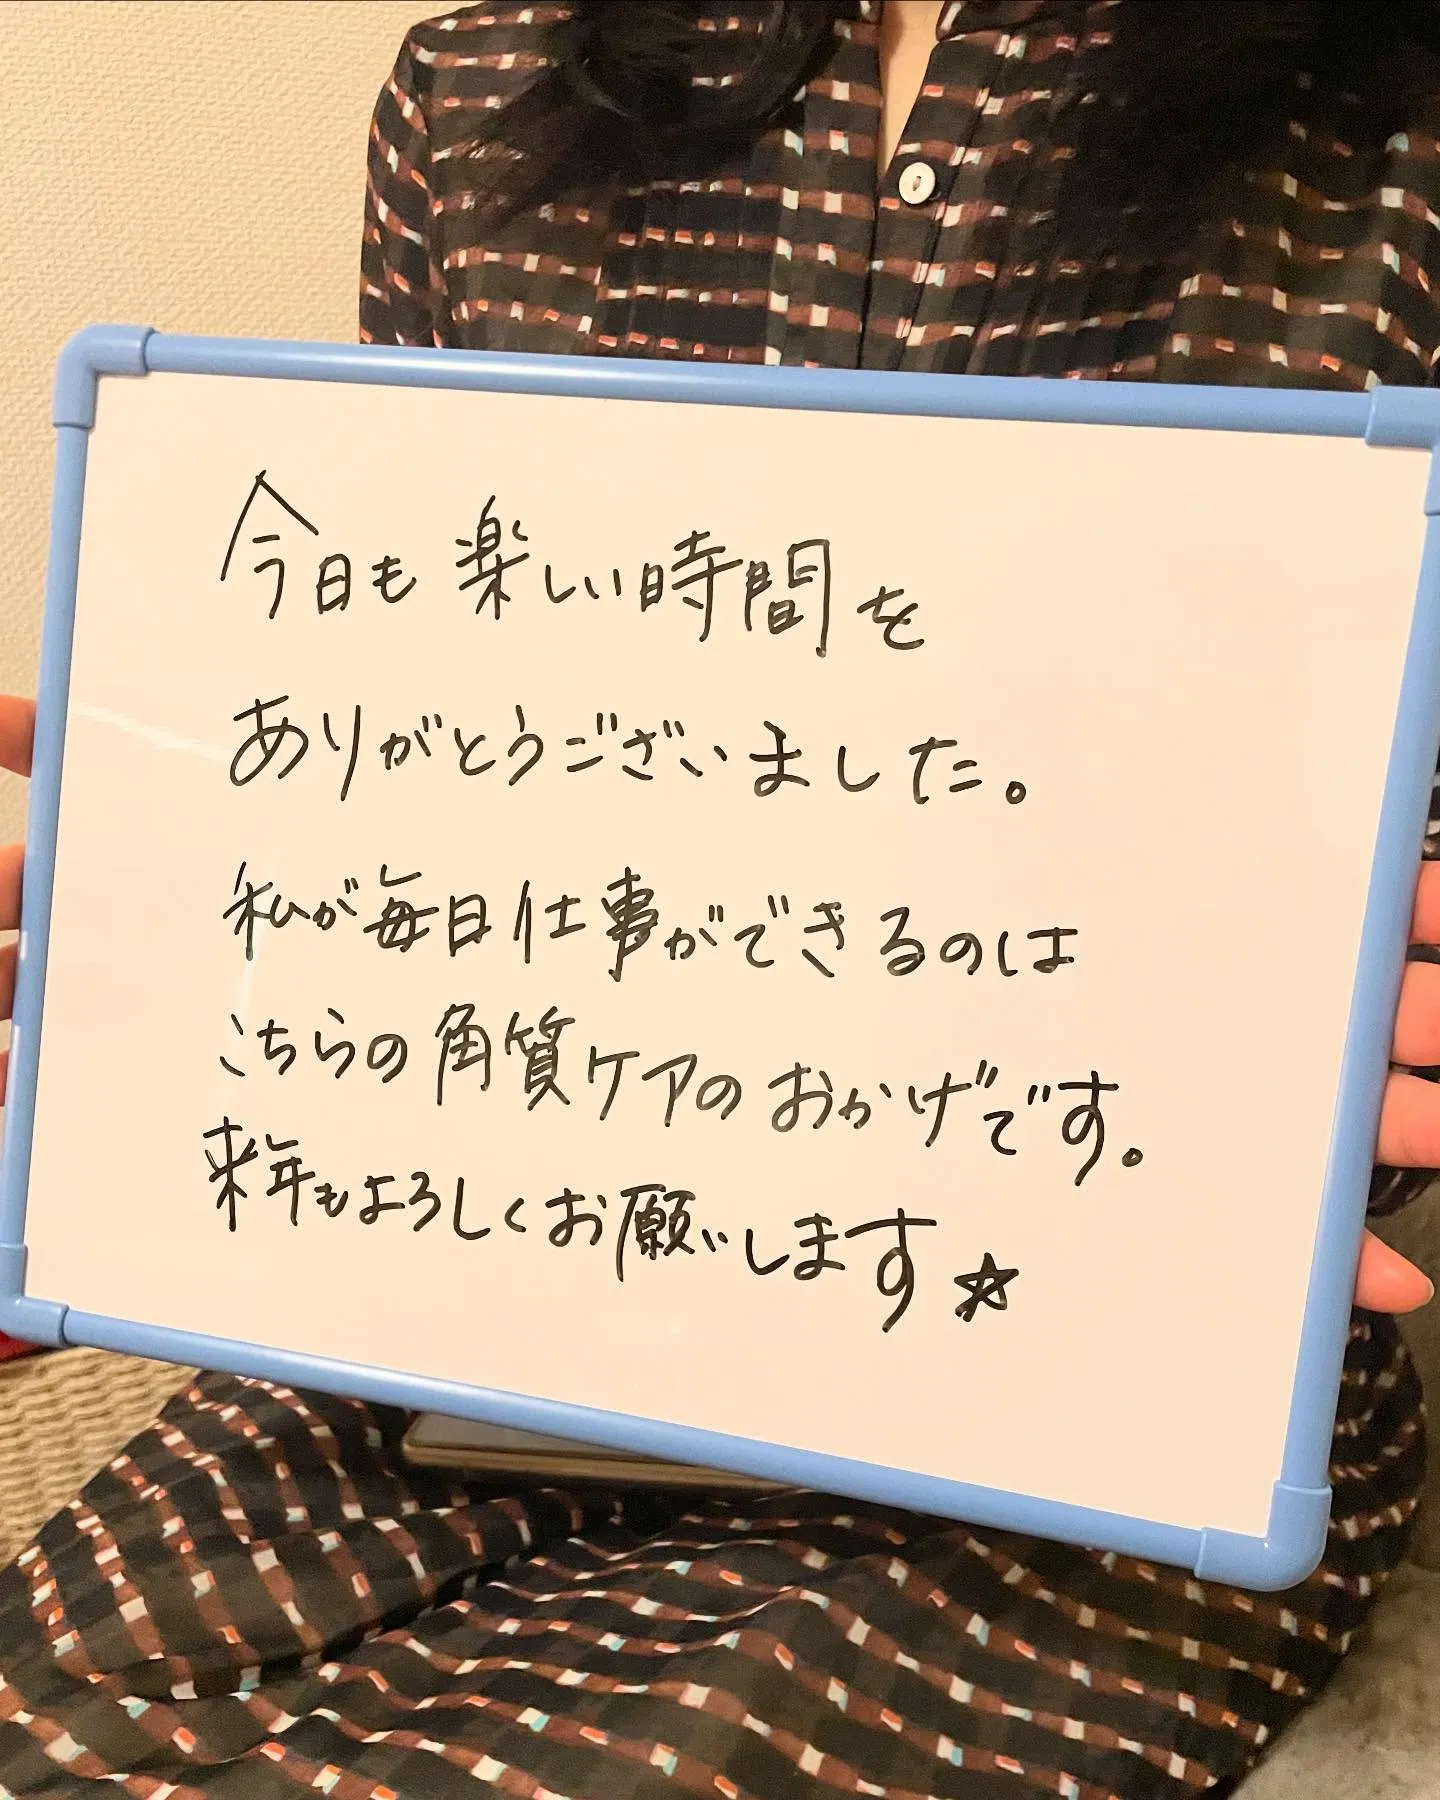 今日も楽しい時間を
ありがとうございました。
私が毎日仕事ができるのは
こちらの角質ケアのおかげです。
来年もよろしくお願いします☆